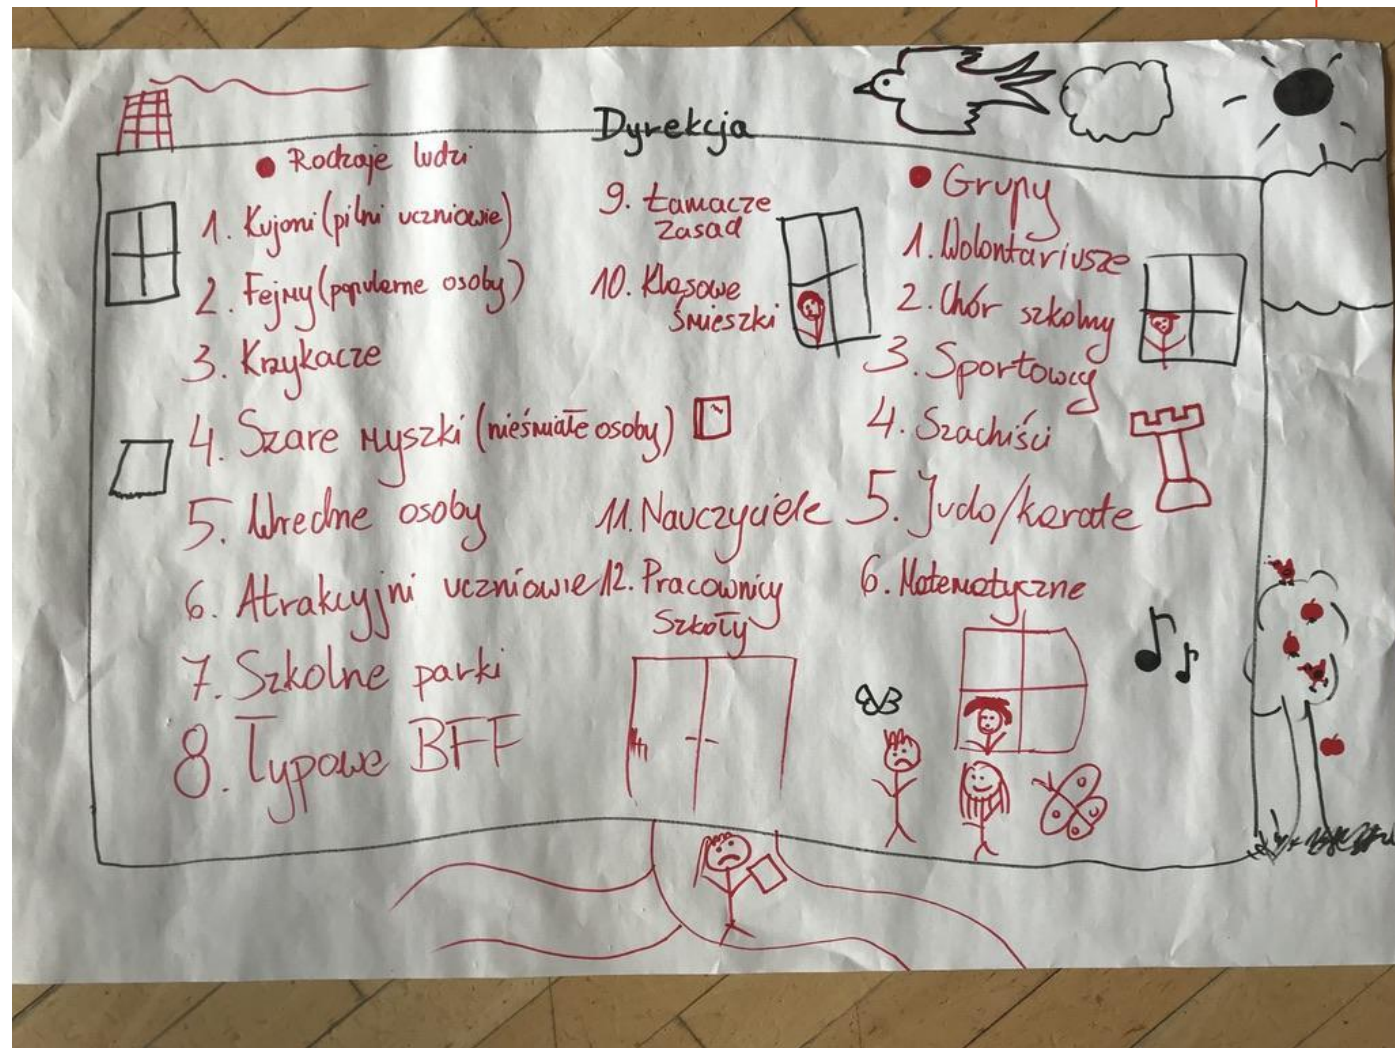 Dyrekcja
Rodzaje ludzi
1. Kujoni (pilni uczniowie)
2. Fejmy (popularne osoby)
3. Krzykacze
4. Szare myszki (nieśmiałe osoby)
5. Wredne osoby
6. Atrakcyjni uczniowie
7. Szkolne parki
8. Typowe BFF
9. Łamacze
zasad
10. Klasowe
śmieszki
11. Nauczyciele
12. Pracownicy
Szkoły
Grupy
1. Wolontariusze
2. Chór szkolny
3. Sportowcy
4. Szachiści
5. Judo/karate
6. Matematyczne